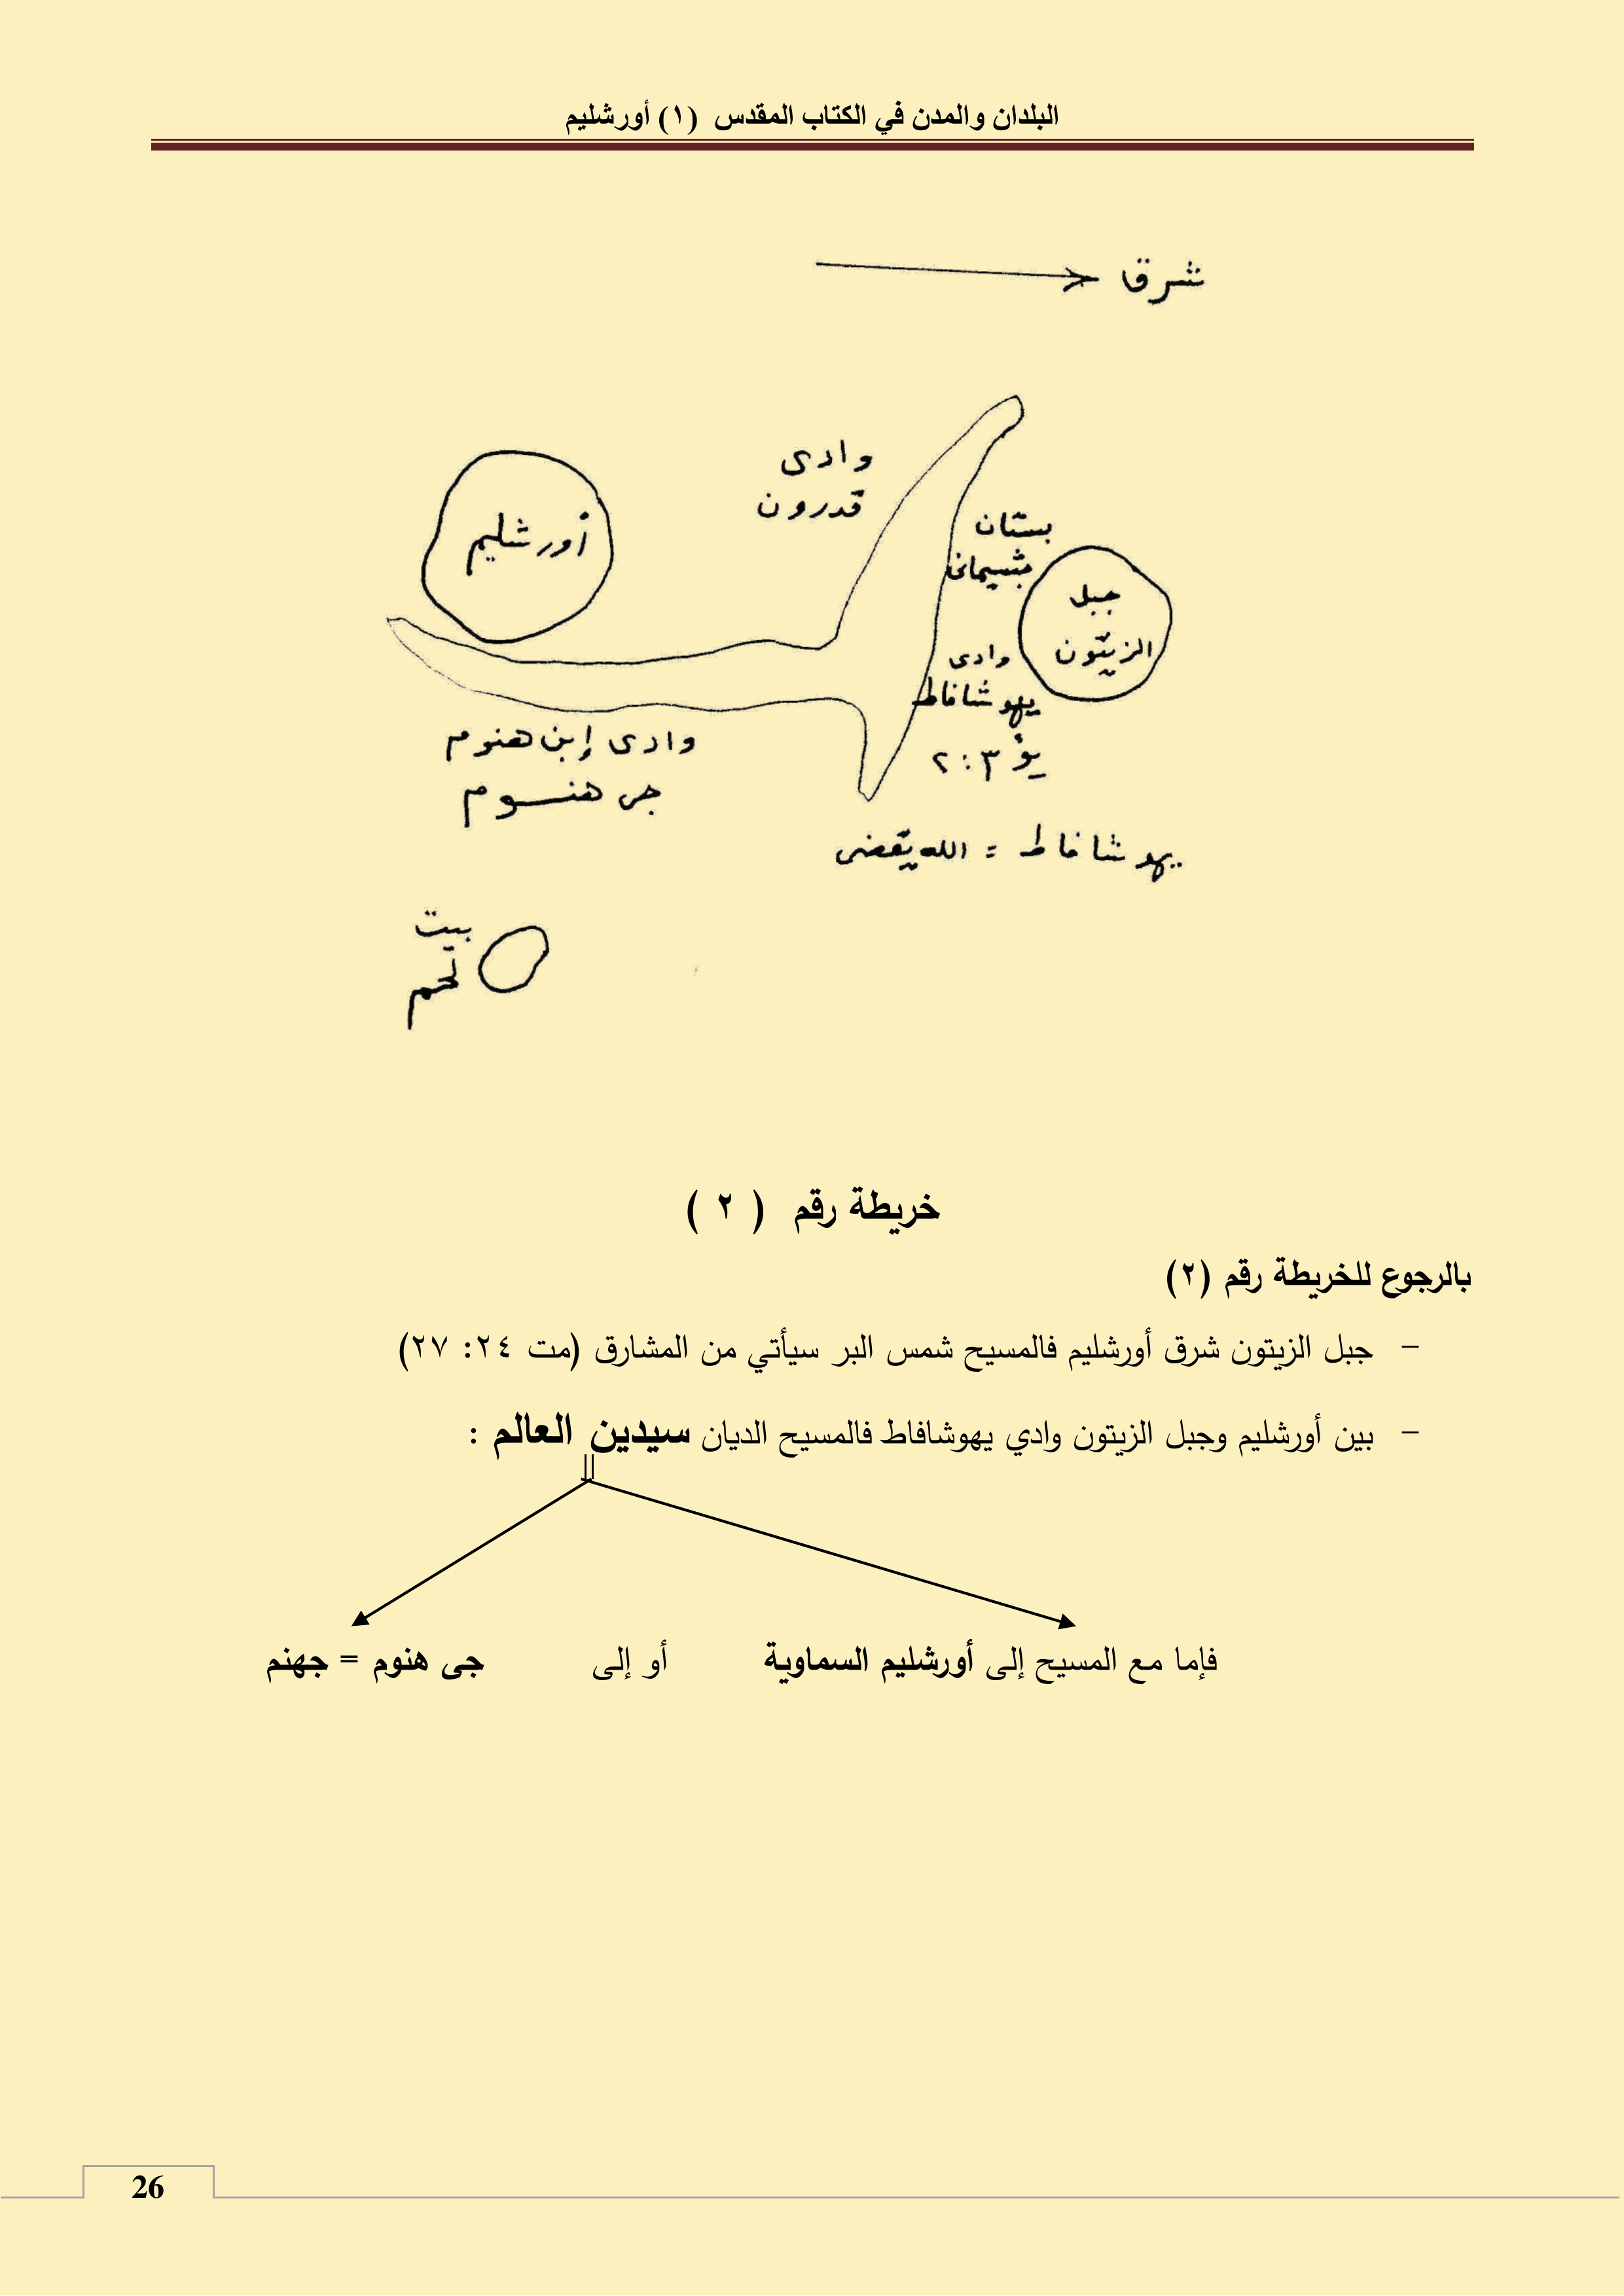 البلدان والمدن في الكتاب المقدس (١) أورشليم
شرق
وادى
قدرون
أورشليم
بستان
جثسيمانى
جبل
الزيتون
وادى
يهوشافاط
يؤ ٣ : ٢
وادى إبن هنوم
جى هنوم
يهوشافاط = الله يقضى
بيت
لحم
خريطة رقم ( ٢ )
بالرجوع للخريطة رقم (٢)
- جبل الزيتون شرق أورشليم فالمسيح شمس البر سيأتي من المشارق (مت ٢٤: ٢٧)
- بين أورشليم وجبل الزيتون وادي يهوشافاط فالمسيح الديان سيدين العالم :
فإما مع المسيح إلى أورشليم السماوية أو إلى جى هنوم = جهنم
26